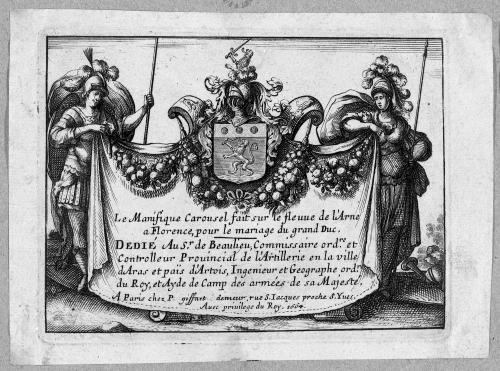 Le Manifique Carousel fait sur le fleuue de l'Arne
a Florence, pour le mariage du grand Duc.
DEDIE Au Sr. de Beaulieu, Commissaire ordre. et
Controlleur Provincial de l'Artillerie en la ville
d'Aras et païs d'Artois, Ingenieur et Geographe ordre.
du Roy, et Ayde de Camp des armées de sa Majesté.
A Paris chez P. giffart demeur, rue S. Iacques proche S. Yues.
Auec priuilege du Roy. 1664.